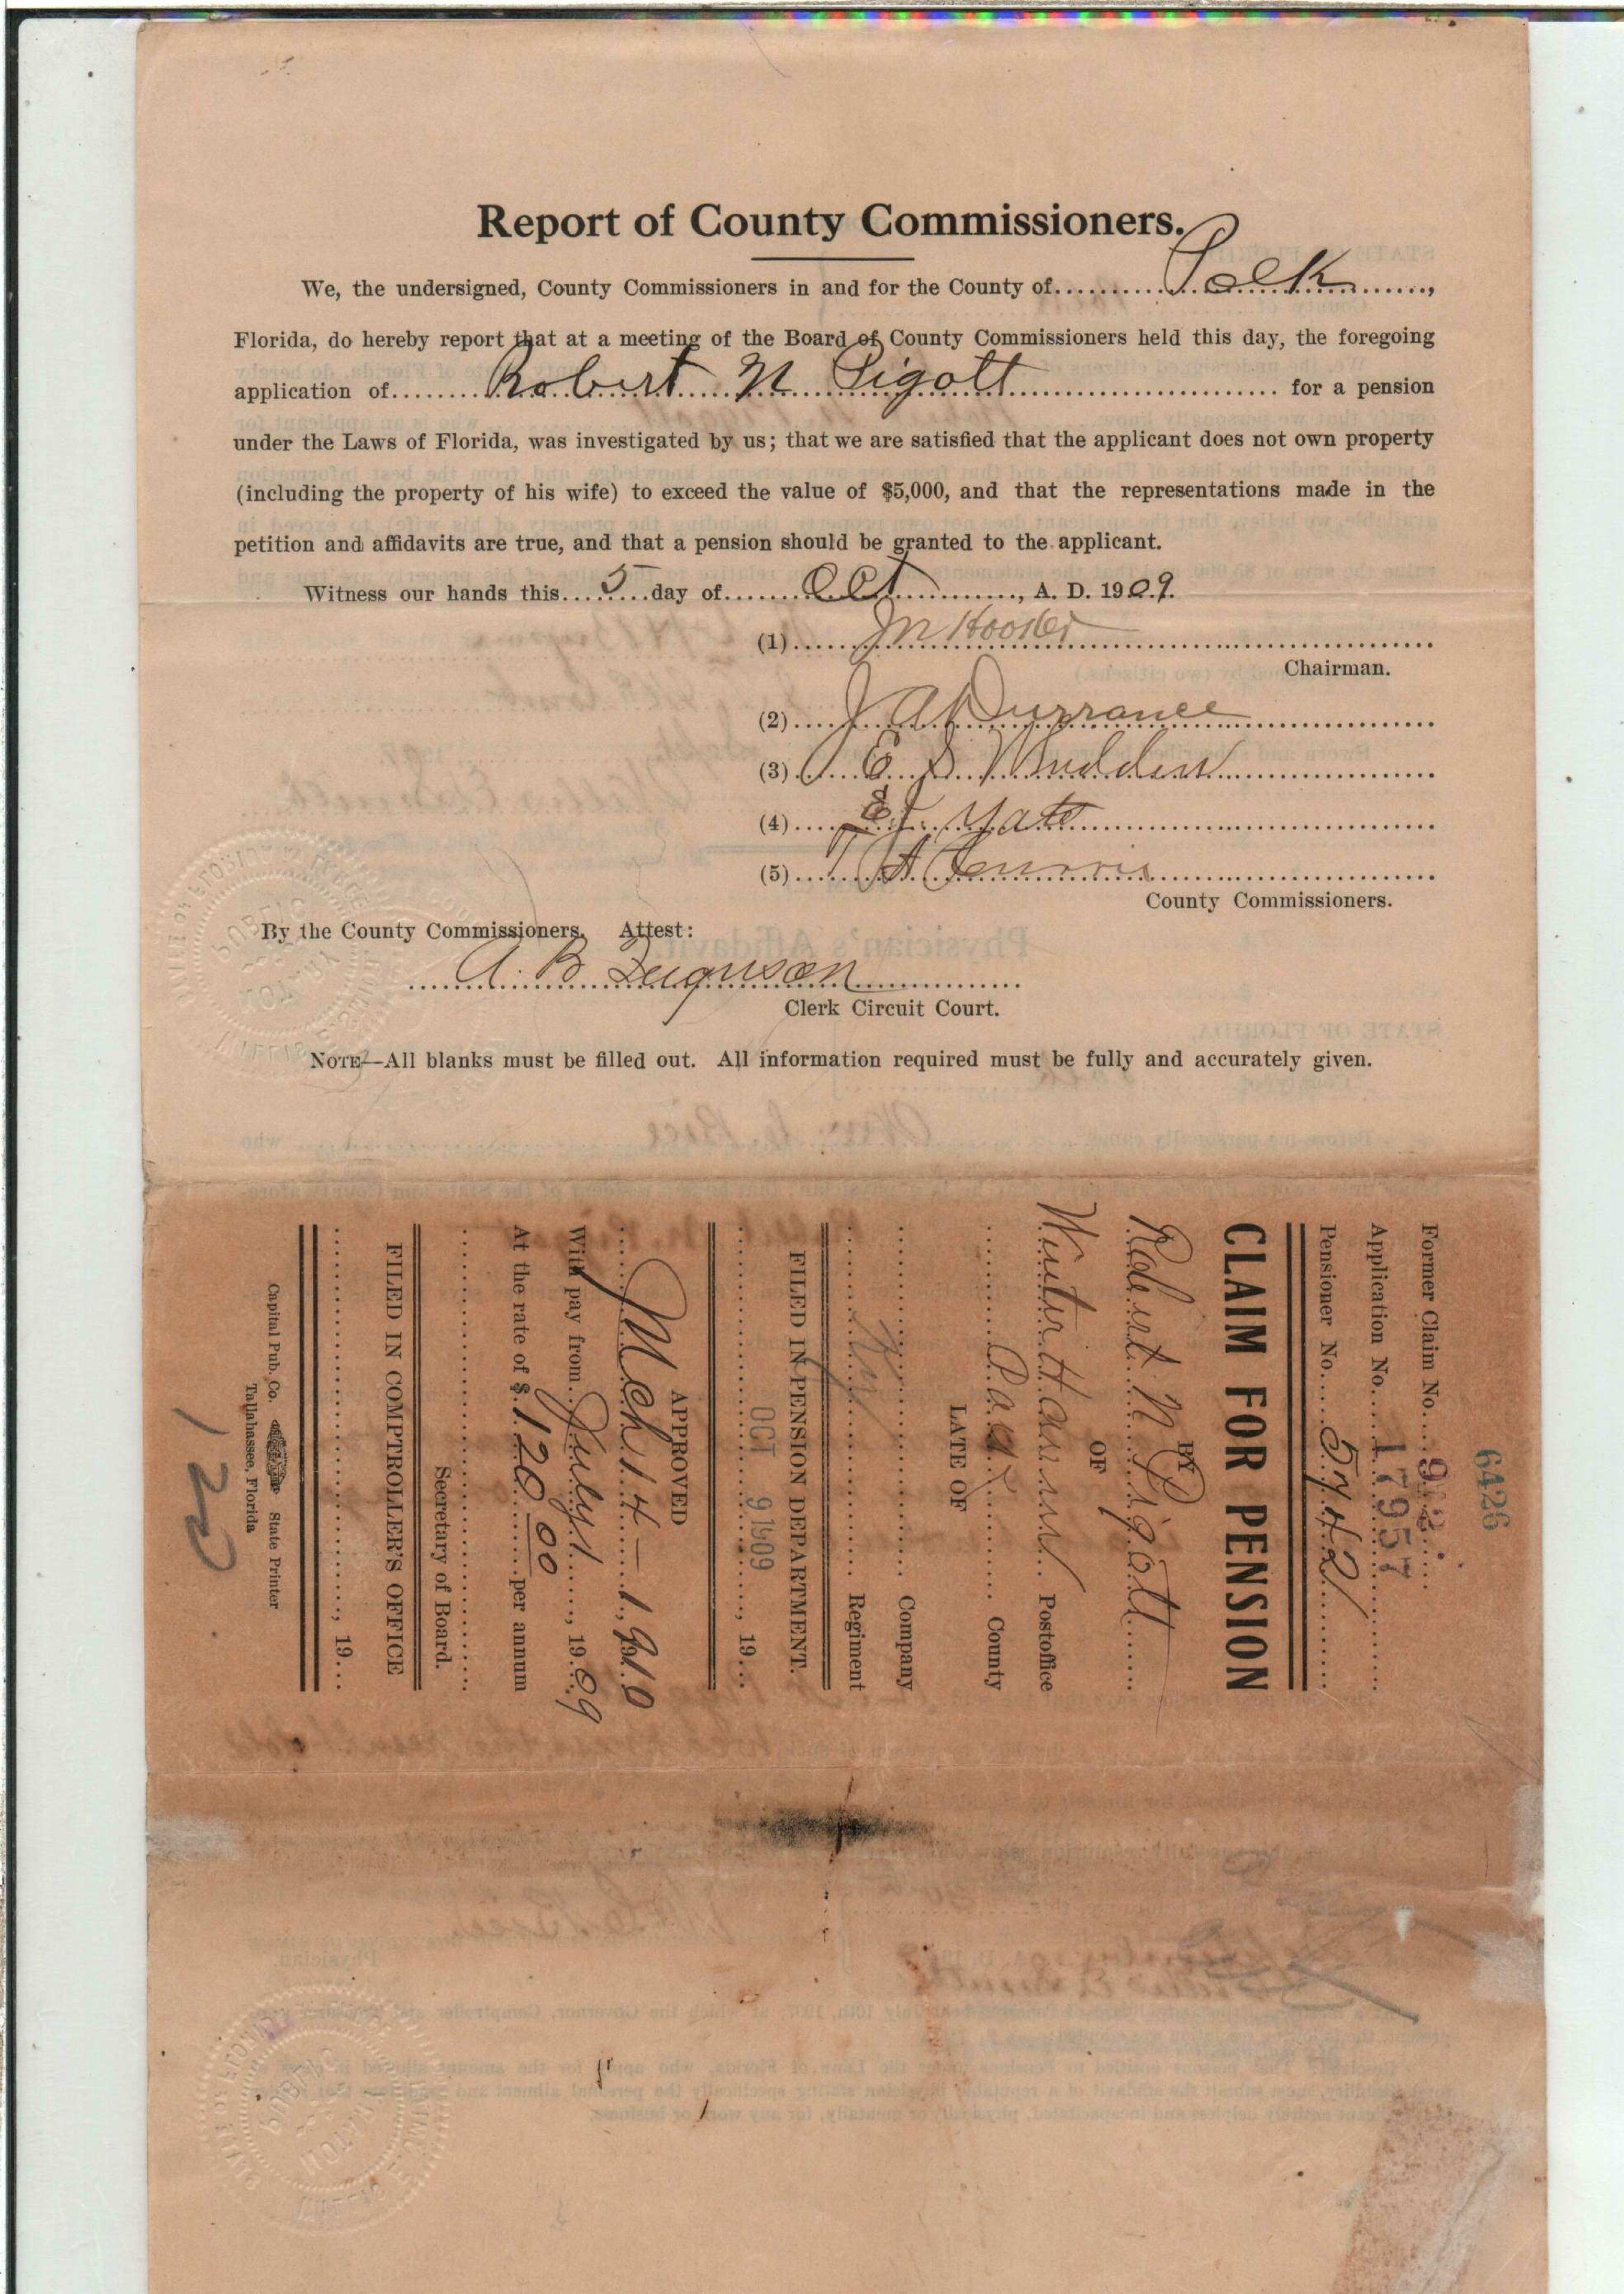 Report of County Commissioners.
We, the undersigned, County Commissioners in and for the County of Polk,
Florida, do hereby report that at a meeting of the Board of County Commissioners held this day, the foregoing
application of Robert N Pigott for a pension
under the Laws of Florida, was investigated by us; that we are satisfied that the applicant does not own property
(including the property of his wife) to exceed the value of $5,000, and that the representations made in the
petition and affidavits are true, and that a pension should be granted to the applicant.
Witness our hands this 5 day of Oct, A. D. 1909.
(1)
Chairman.
(2) J A Durrance
(3)
(4) Yate
(5)
County Commissioners.
By the County Commissioners. Attest:
A. B. Ferguson
Clerk Circuit Court.
NOTE—All blanks must be filled out. All information required must be fully and accurately given.
6426
Former Claim No.
Application No. 17957
Pensioner No. 5742
CLAIM FOR PENSION
BY
Robert N Pigott
OF
Winter Haven Postoffice
County
LATE OF
Company
Regiment
FILED IN PENSION DEPARTMENT.
OCT 9 1909, 19
APPROVED
Mch 14 - 1910
With pay from July 1, 1909
At the rate of $120.00 per annum
Secretary of Board.
FILED IN COMPTROLLER'S OFFICE
, 19
Capital Pub. Co. State Printer
Tallahassee, Florida
120